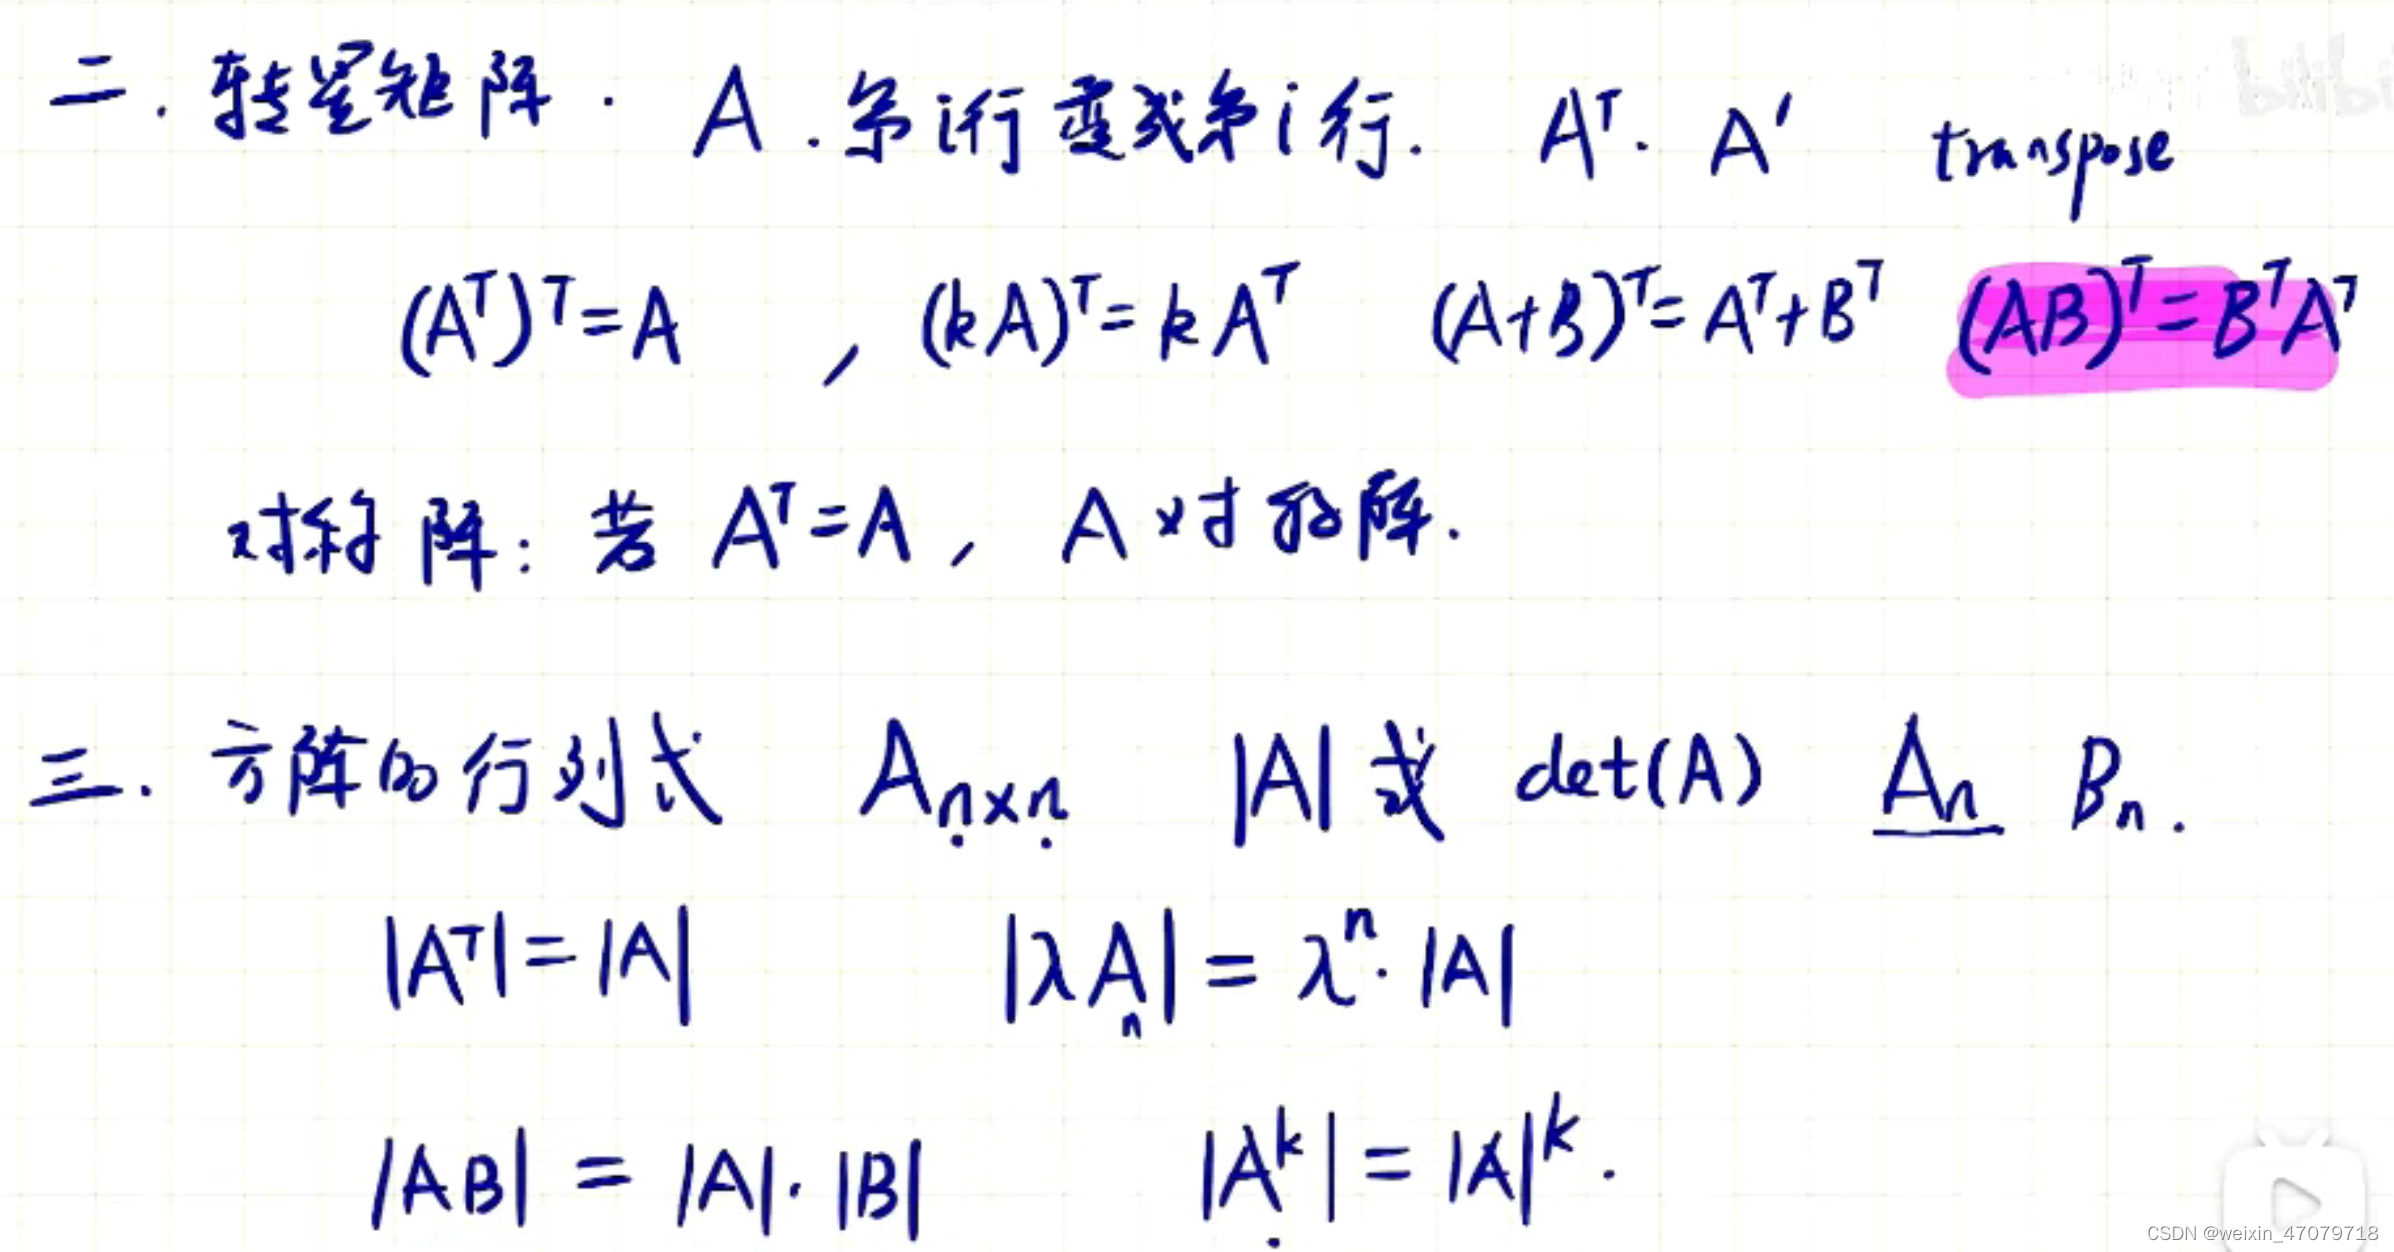 二. 转置矩阵. A. 第i行变成第i行. Aᵀ. A' transpose
(Aᵀ)ᵀ=A , (kA)ᵀ=kAᵀ (A+B)ᵀ=Aᵀ+Bᵀ (AB)ᵀ=BᵀAᵀ
对称阵: 若 Aᵀ=A, A对称阵.
三. 方阵的行列式 Aₙₓₙ |A|或 det(A) Aₙ Bₙ.
|Aᵀ|=|A| |λAₙ|=λⁿ·|A|
|AB|=|A|·|B| |Aᵏ|=|A|ᵏ.
CSDN @weixin_47079718